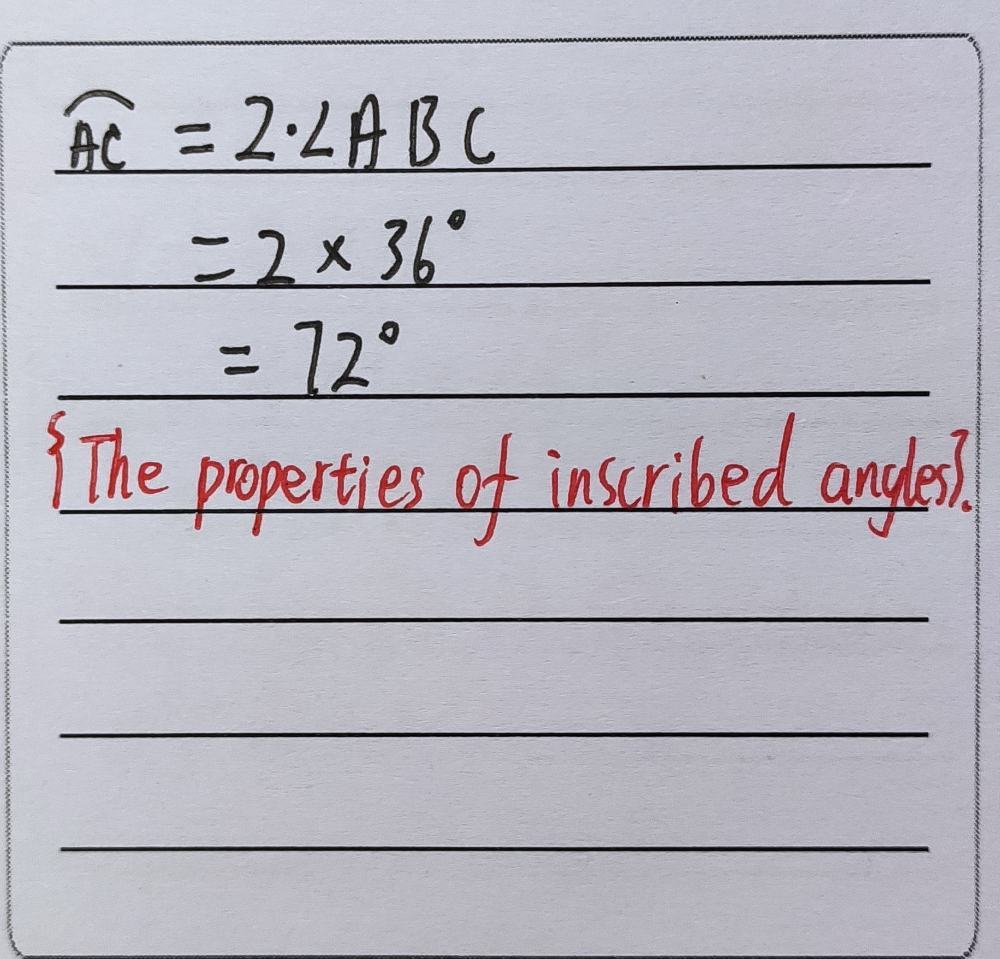 ⌒AC = 2·∠ABC
= 2 × 36°
= 72°
{The properties of inscribed angles}.